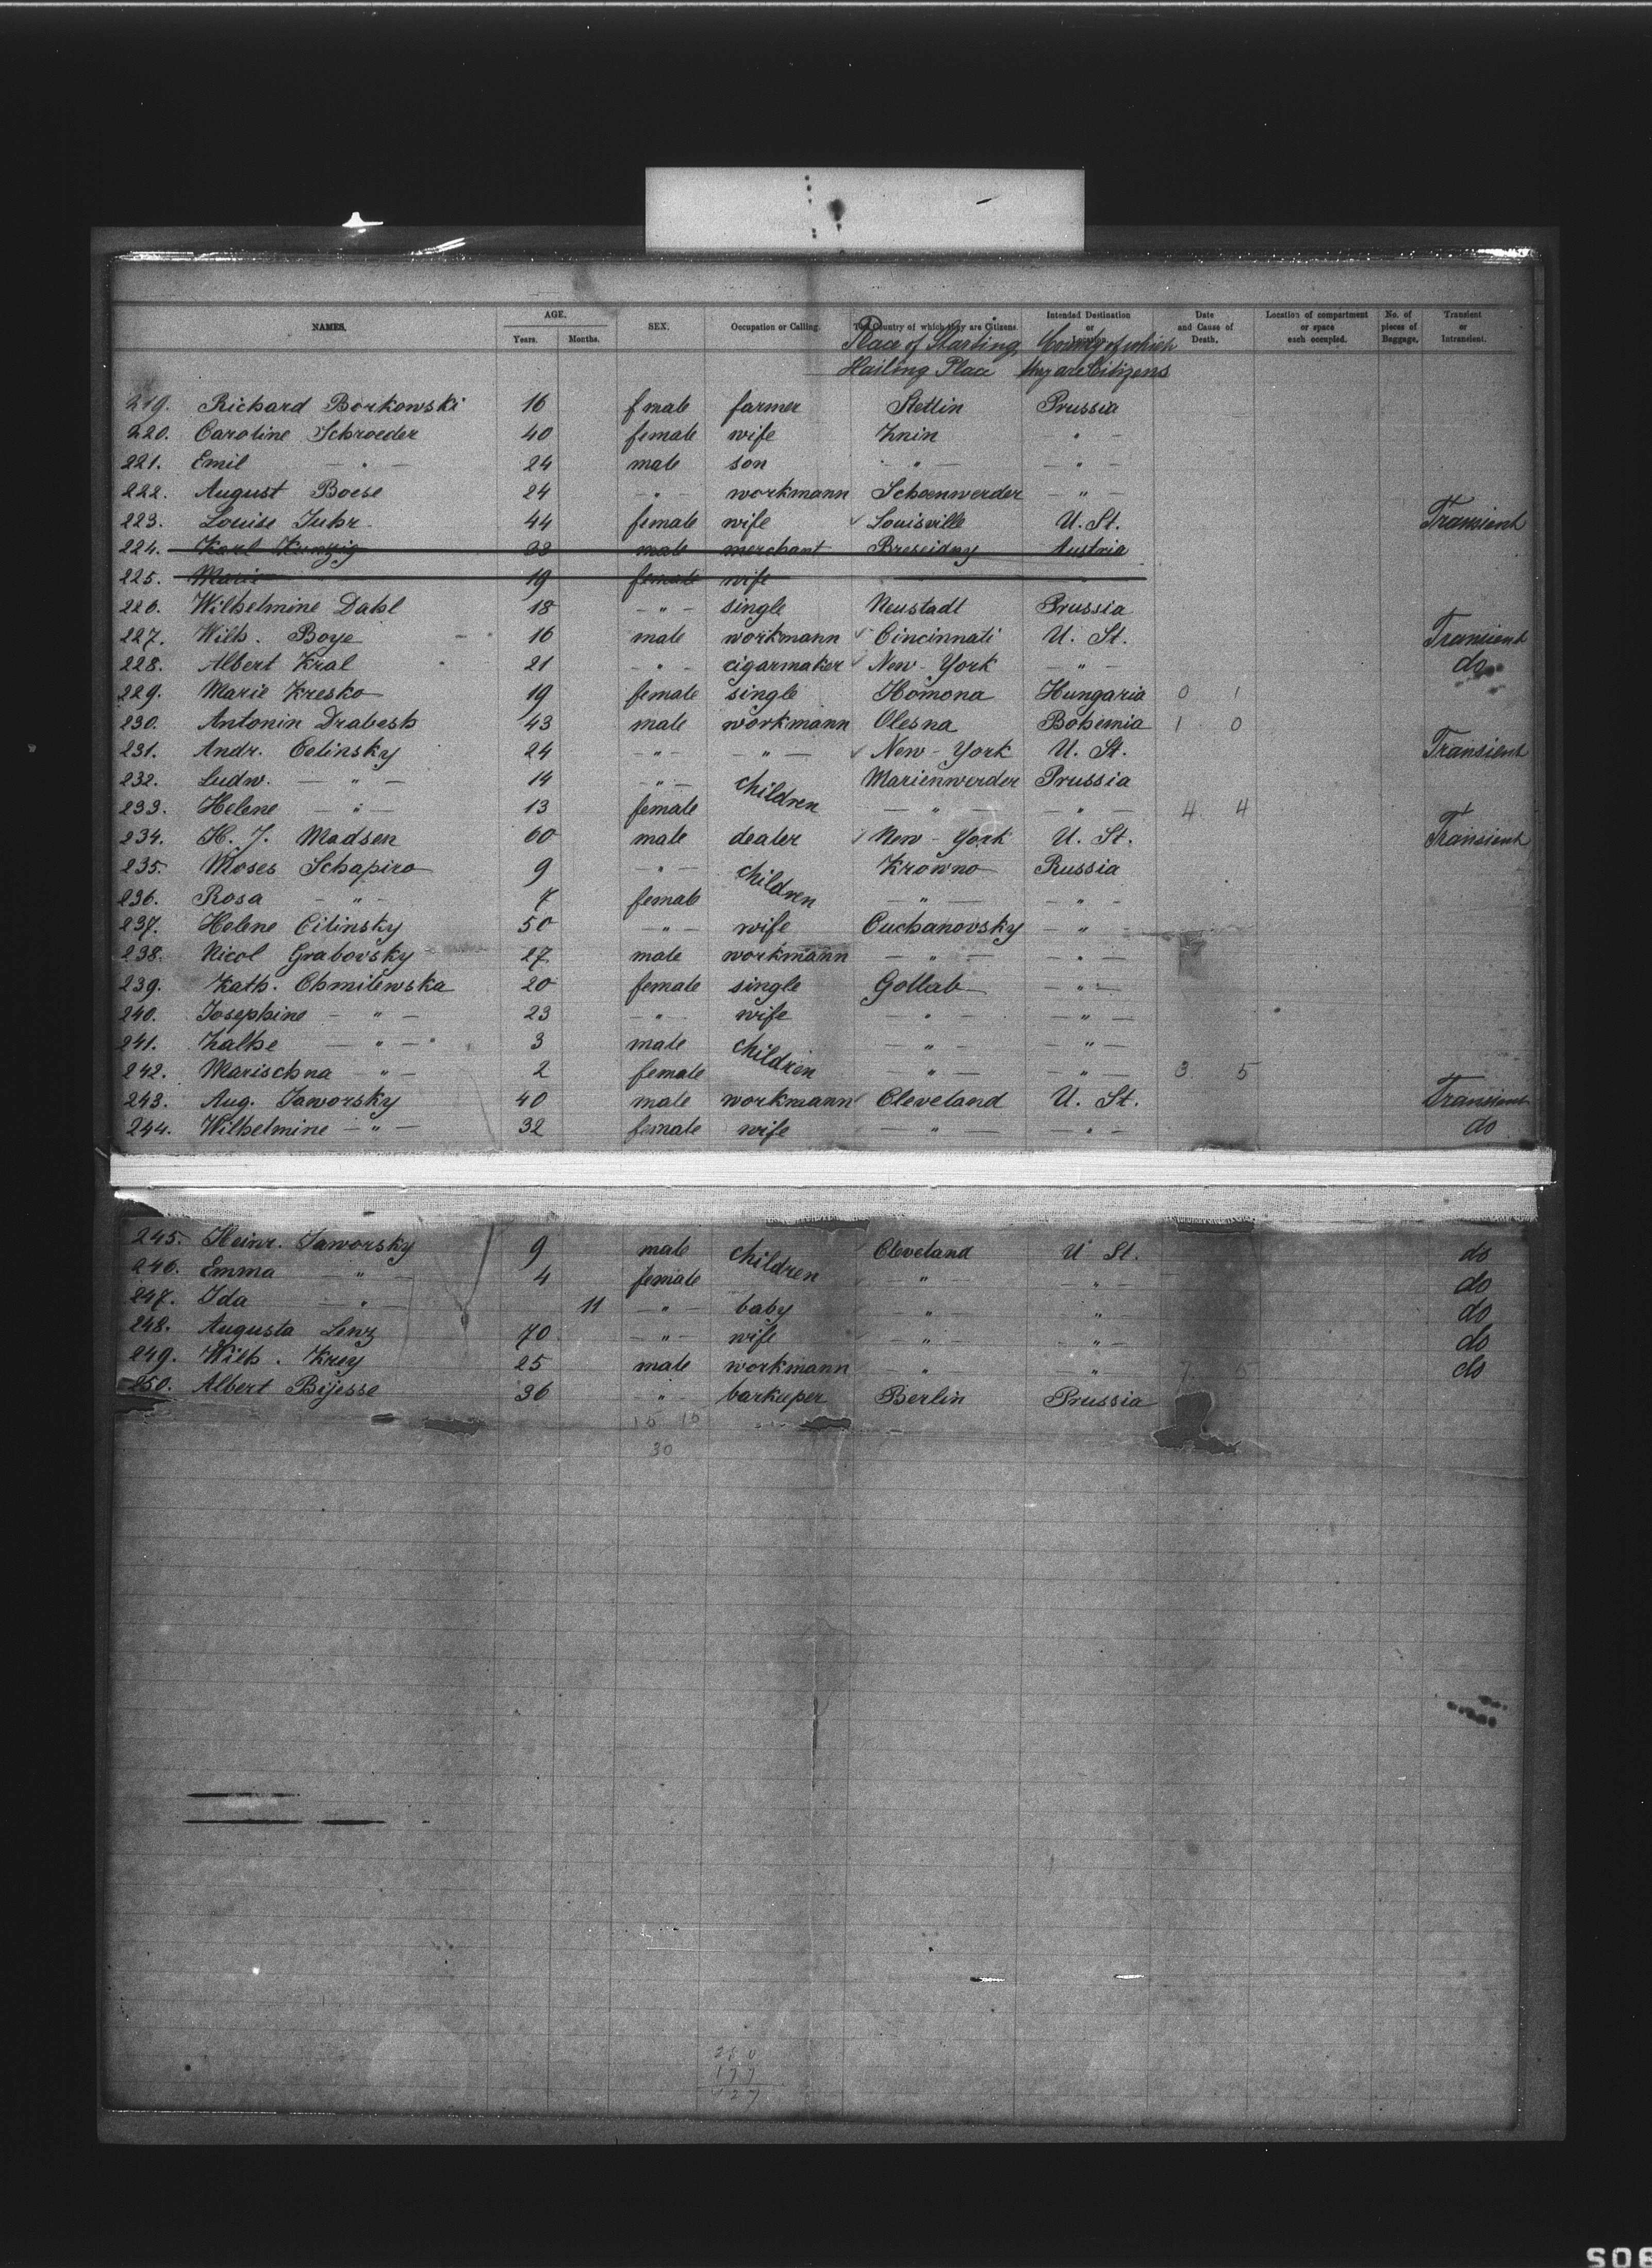 NAMES. AGE. Years. Months. SEX. Occupation or Calling. The Country of which they are Citizens. Intended Destination or Location. Date and Cause of Death. Location of compartment or space each occupied. No. of pieces of Baggage. Transient or Intransient.
Place of Starting County of which
Hailing Place they are Citizens
219. Richard Borkowski 16 f male farmer Stettin Prussia
220. Caroline Schroeder 40 female wife Znin " -
221. Emil - " - 24 male son - " - - " -
222. August Boese 24 - " workmann Schoenwerder - " -
223. Louise Juhr 44 female wife ✓ Louisville U. St. Transient
224. Karl Kunzig male merchant Austria
225. Marie 19 female wife
226. Wilhelmine Dahl 18 - " - single Neustadt Prussia
227. Wilh. Boye 16 male workmann ✓ Cincinnati U. St. Transient
228. Albert Kral 21 - " - cigarmaker ✓ New-York - " - do
229. Marie Kresko 19 female single Homona Hungaria 0 1
230. Antonin Drabesh 43 male workmann Olesna Bohemia 1 0
231. Andr. Celinsky 24 - " - " - ✓ New-York U. St. Transient
232. Ludw. - " - 14 - " - children Marienwerder Prussia
233. Helene - " - 13 female - " - - " - 4 4
234. H. J. Madsen 60 male dealer ✓ New-York U. St. Transient
235. Moses Schapiro 9 - " - children Krowno Russia
236. Rosa - " - 7 female - " - - " -
237. Helene Citinsky 50 - " - wife Cuchanovsky - " -
238. Nicol Grabovsky 27 male workmann - " - - " -
239. Kath. Chmilewska 20 female single Gollab - " -
240. Josephine - " - 23 - " - wife - " - - " -
241. Zalke - " - 3 male children - " - - " -
242. Marischna - " - 2 female - " - - " - 3 5
243. Aug. Jaworsky 40 male workmann ✓ Cleveland U. St. Transient
244. Wilhelmine - " - 32 female wife - " - - " - do
245. Heinr. Jaworsky 9 male children Cleveland U St. do
246. Emma - " - 4 female - " - - " - do
247. Ida - " - 11 - " - baby - " - " do
248. Augusta Lenz 70 - " - wife - " - - " - do
249. Wilh. Krey 25 male workmann - " " do
250. Albert Bijesse 36 " - barkeeper Berlin Prussia
15 15
30